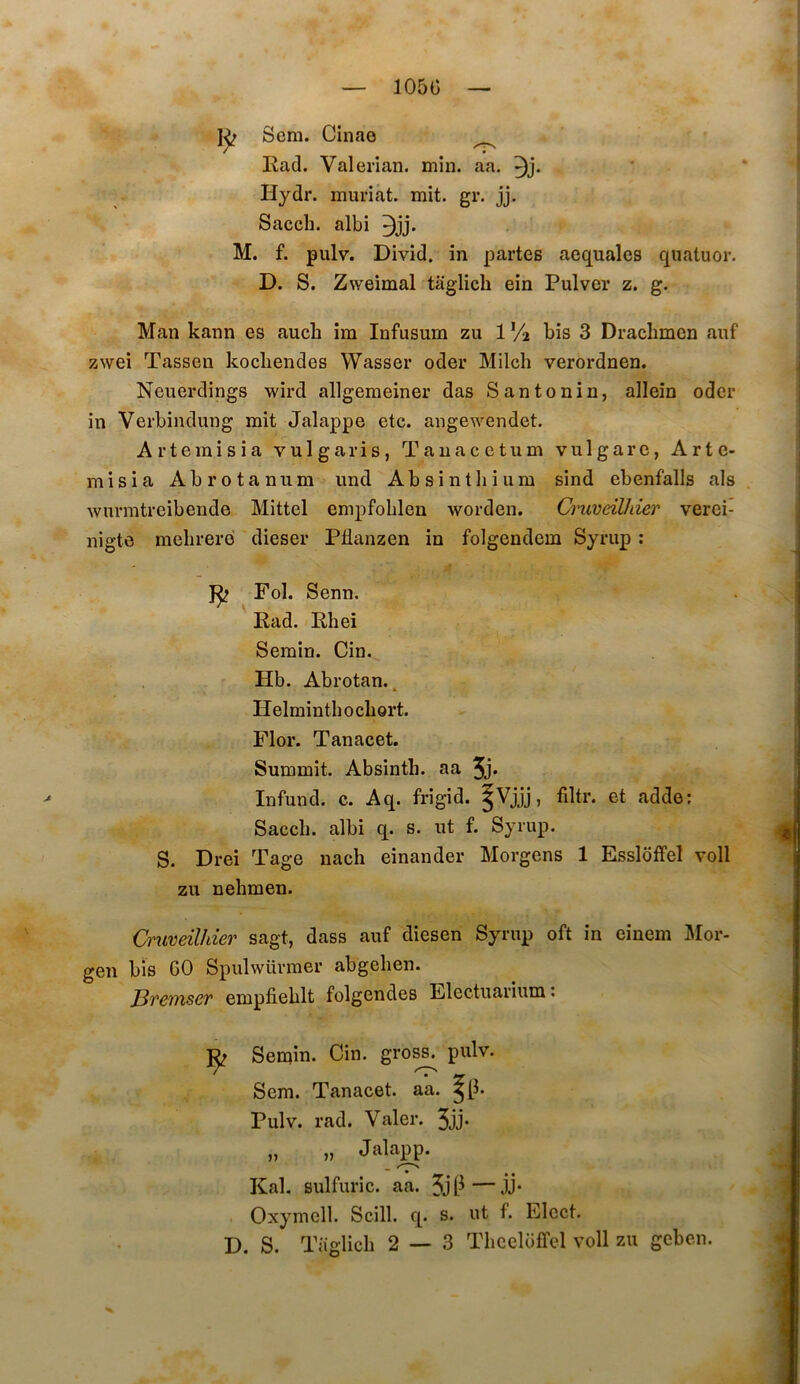 — 1056 —
℞ Sem. Cinae
Rad. Valerian. min. aa. ℈j.
Hydr. muriat. mit. gr. jj.
Sacch. albi ℈jj.
M. f. pulv. Divid. in partes aequales quatuor.
D. S. Zweimal täglich ein Pulver z. g.
Man kann es auch im Infusum zu 1½ bis 3 Drachmen auf
zwei Tassen kochendes Wasser oder Milch verordnen.
Neuerdings wird allgemeiner das Santonin, allein oder
in Verbindung mit Jalappe etc. angewendet.
Artemisia vulgaris, Tanacetum vulgare, Arte-
misia Abrotanum und Absinthium sind ebenfalls als
wurmtreibende Mittel empfohlen worden. Cruveilhier verei-
nigte mehrere dieser Pflanzen in folgendem Syrup :
℞ Fol. Senn.
Rad. Rhei
Semin. Cin.
Hb. Abrotan.
Helminthochort.
Flor. Tanacet.
Summit. Absinth. aa ʒj.
Infund. c. Aq. frigid. ℥Vjjj, filtr. et adde:
Sacch. albi q. s. ut f. Syrup.
S. Drei Tage nach einander Morgens 1 Esslöffel voll
zu nehmen.
Cruveilhier sagt, dass auf diesen Syrup oft in einem Mor-
gen bis 60 Spulwürmer abgehen.
Bremser empfiehlt folgendes Electuarium:
℞ Semin. Cin. gross. pulv.
Sem. Tanacet. aa. ℥β.
Pulv. rad. Valer. ʒjj.
„ „ Jalapp.
Kal. sulfuric. aa. ʒjβ — jj.
Oxymell. Scill. q. s. ut f. Elect.
D. S. Täglich 2 — 3 Theelöffel voll zu geben.